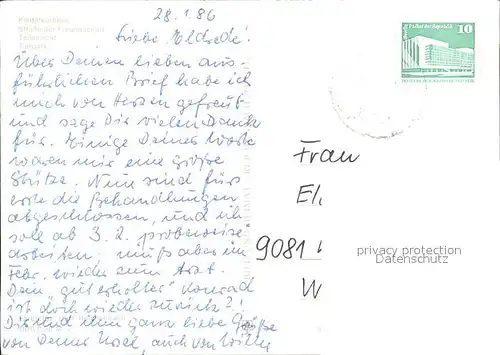 28.1.86
Liebe Elchede!
Über Deinen lieben aus-
führlichen Brief habe ich
mich von Herzen gefreut
und sage Dir vielen Dank
für. Einige Deiner Worte
waren mir eine große
Stütze. Nun sind fürs
erste die Behandlungen
abgeschlossen, und ich
soll ab 3.2. probeweise
arbeiten; muß aber im
Febr. wieder zum Arzt.
Dein gut erholter Konrad
ist doch wieder zurück?!
Dir und ihm ganz liebe Grüße
von Deiner Ursel, auch von Willy
10
Frau
El
9081
W
privacy protection
Datenschutz